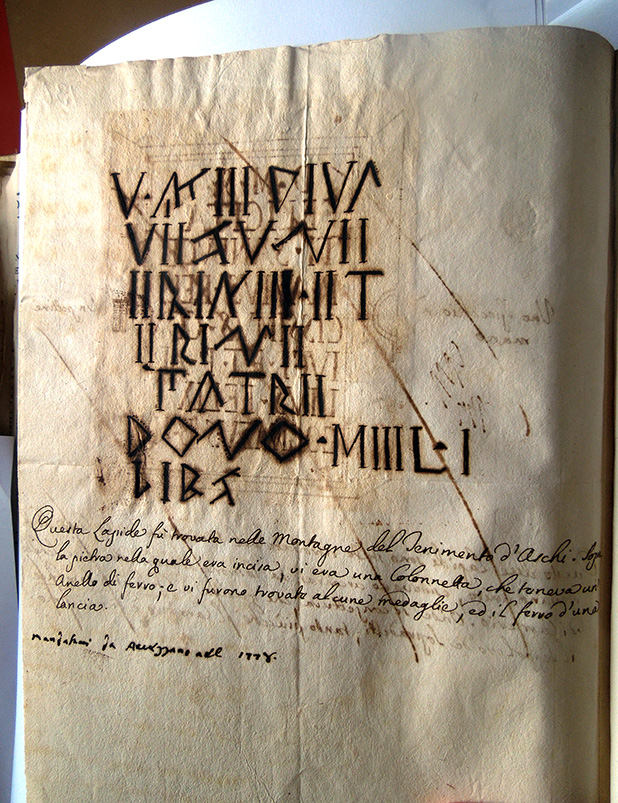 V·AKIII·DIVΛ
VIISV·NII
IIRINIII·IIT
IIRINII
ΓATRII
DONO·MIIIL·I
LIBS
Questa Lapide fù trovata nelle Montagne del Tenimento d'Aschi. Sopa
la pietra nella quale era incisa, vi era una Colonnetta, che teneva un
Anello di ferro; e vi furono trovate alcune medaglie, ed il ferro d'una
lancia.
mandatami da Avezzano nell 1778.